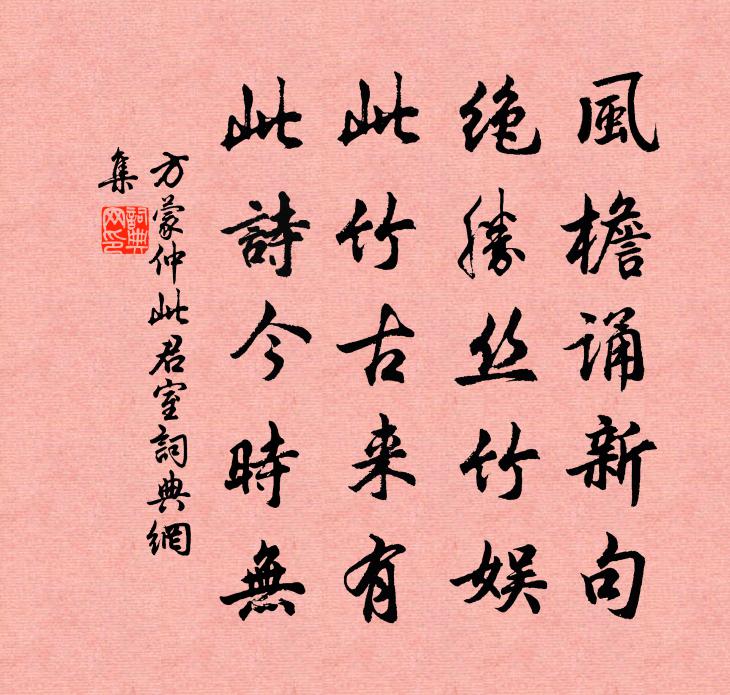 風檐诵新句
绝勝丝竹娱
此竹古来有
此詩今時無
方蒙仲此君室詞典網
集
詞典
网印